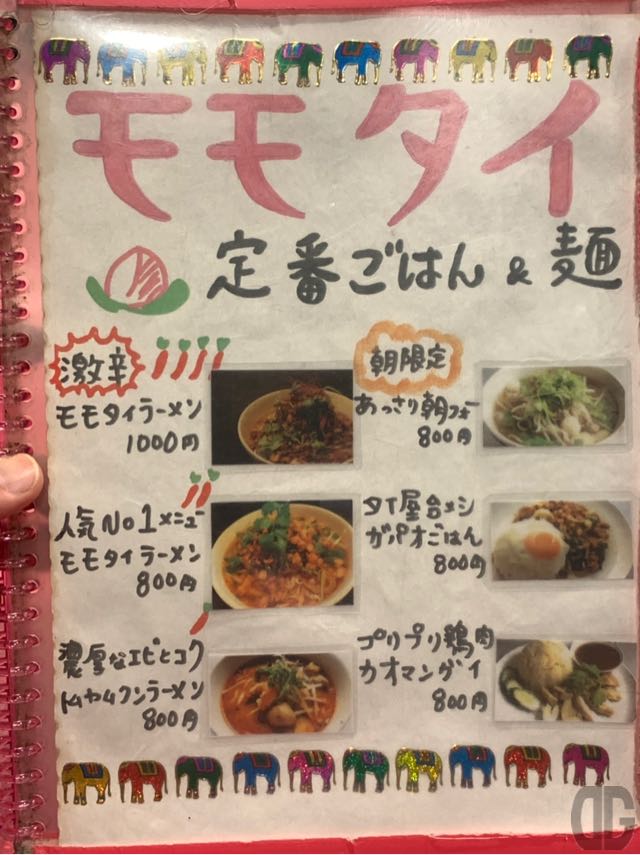 モモタイ
定番ごはん & 麺
激辛
モモタイラーメン
1000円
人気No1メニュー
モモタイラーメン
800円
濃厚なエビとコク
トムヤムクンラーメン
800円
朝限定
あっさり朝フォー
800円
タイ屋台メシ
ガパオごはん
800円
プリプリ鶏肉
カオマンガイ
800円
DG